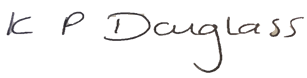 K P Dauglass